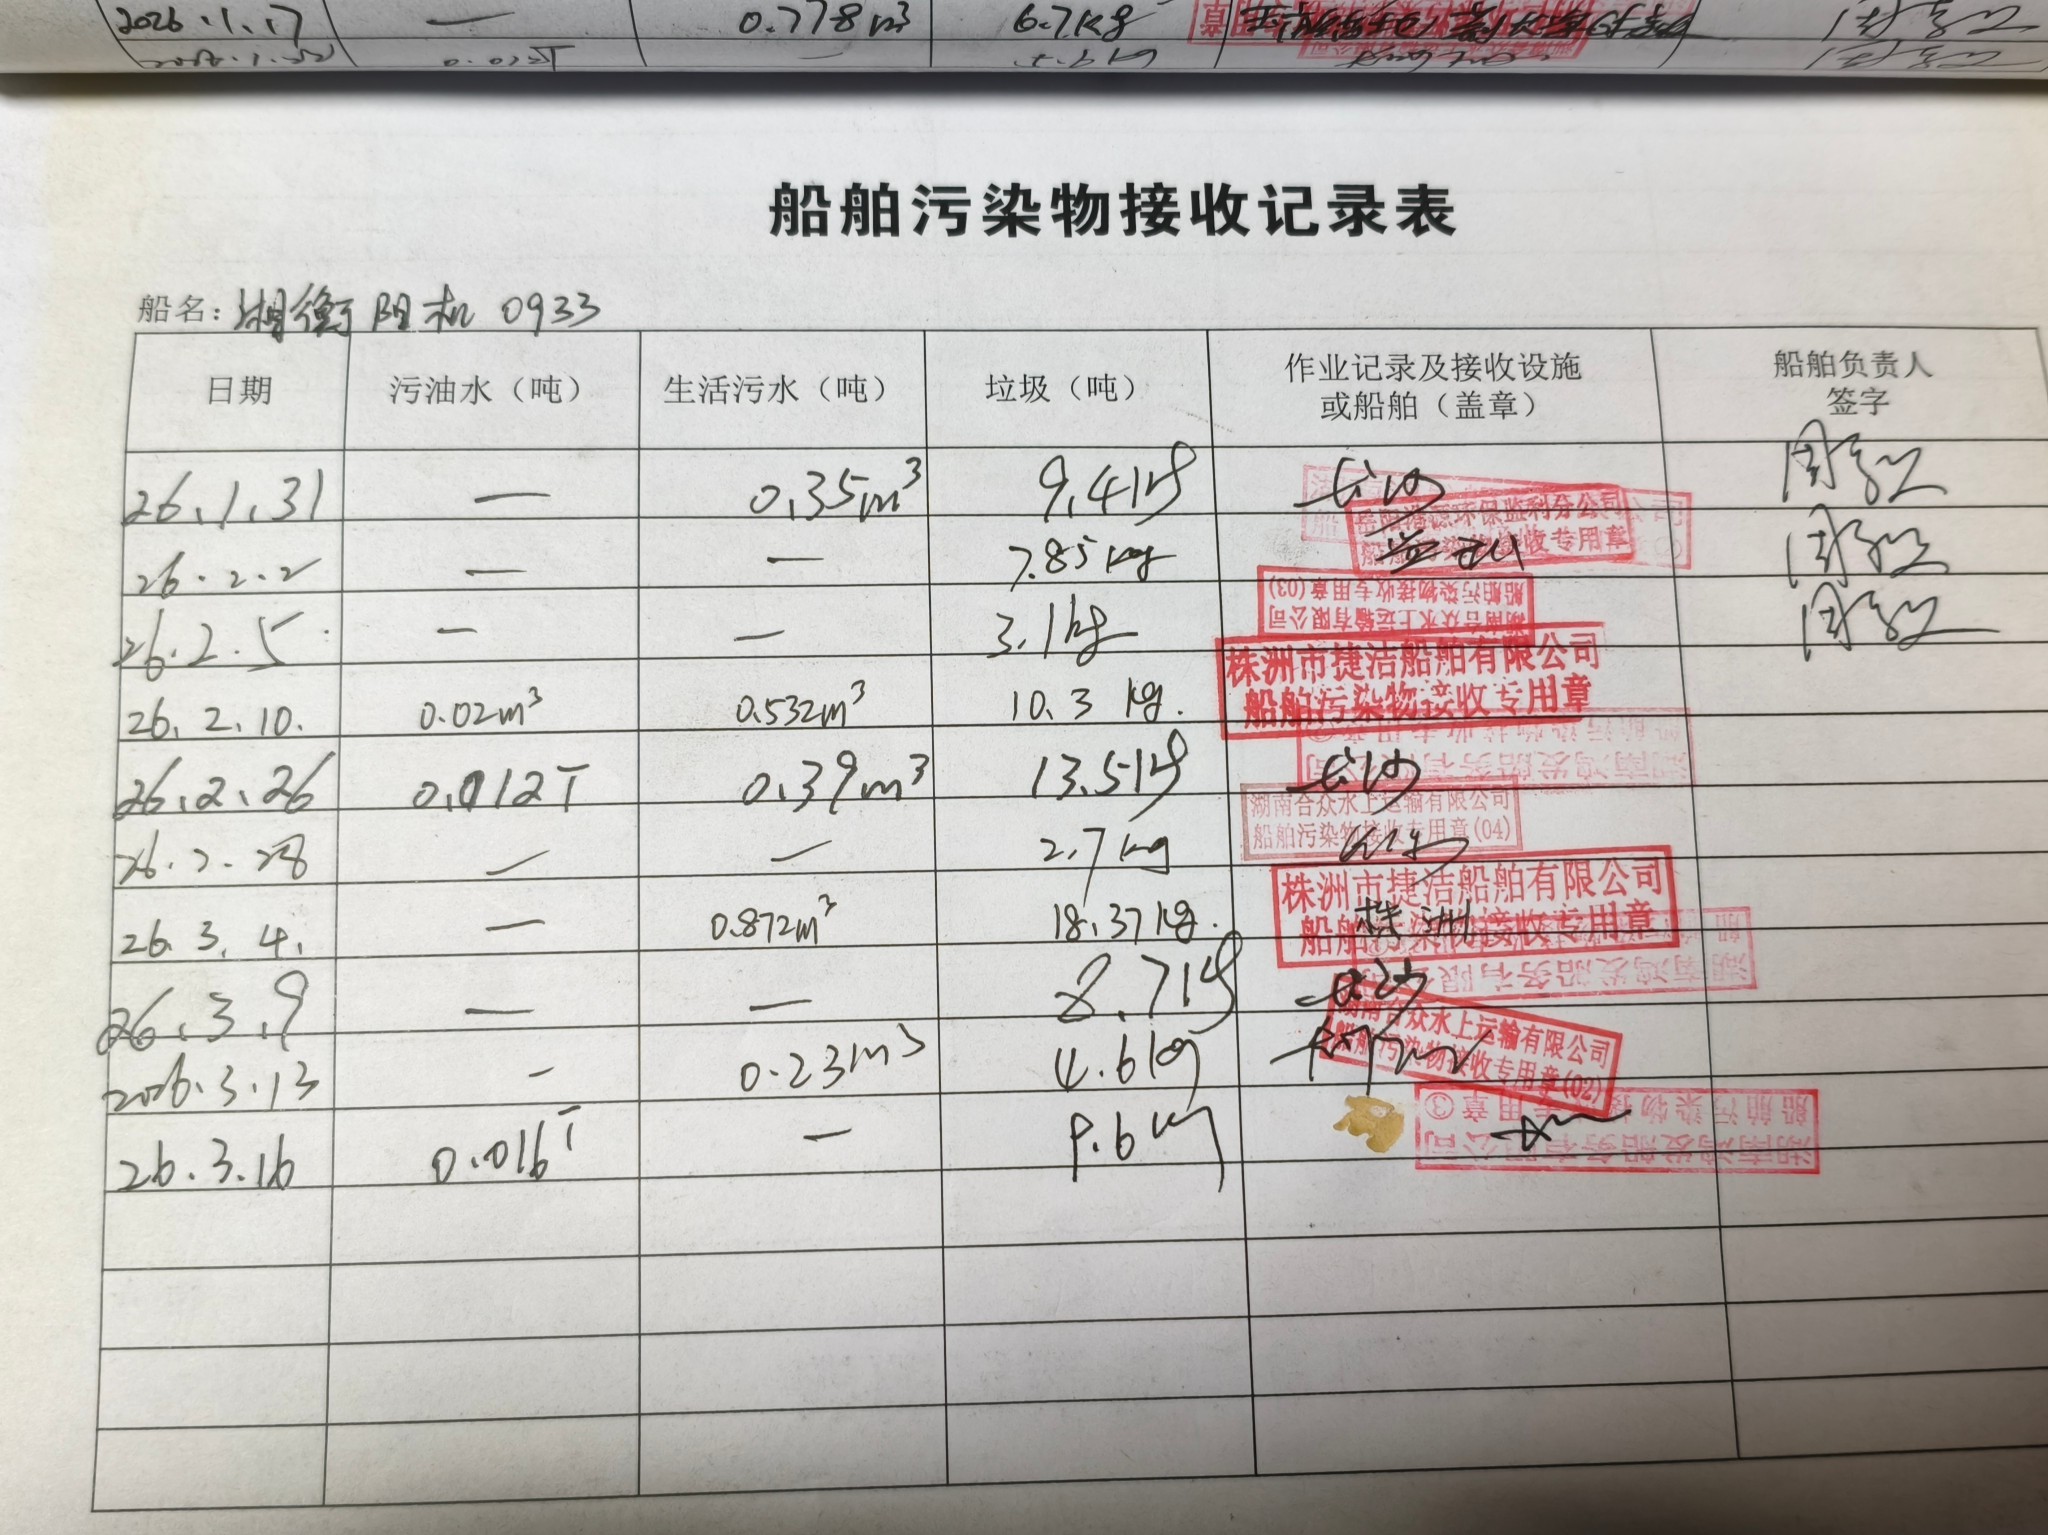 2026.1.17 — 0.778m³ 6.7kg
船舶污染物接收记录表
船名: 湘衡阳机 0933
日期 污油水（吨） 生活污水（吨） 垃圾（吨） 作业记录及接收设施或船舶（盖章） 船舶负责人签字
26.1.31 — 0.35m³ 9.4kg 长沙
岳阳 环保监利分公司
船舶污染物接收专用章
26.2.2 — — 7.85kg 监利
船舶污染物接收专用章(03)
湖南合众水上运输有限公司
26.2.5 — — 3.1kg
株洲市捷洁船舶有限公司
船舶污染物接收专用章
26.2.10. 0.02m³ 0.532m³ 10.3kg.
26.2.26 0.012T 0.39m³ 13.5kg 长沙
湖南鸿发船务有限公司
湖南合众水上运输有限公司
船舶污染物接收专用章(04)
26.2.28 — — 2.7kg
株洲市捷洁船舶有限公司
船舶污染物接收专用章
26.3.4. — 0.872m³ 18.37kg. 株洲
26.3.9 — — 8.7kg 长沙
湖南合众水上运输有限公司
船舶污染物接收专用章(02)
2026.3.13 - 0.23m³ 4.6kg
船舶污染物接收专用章③
湖南鸿发船务有限公司
26.3.16 0.016T — 9.6kg